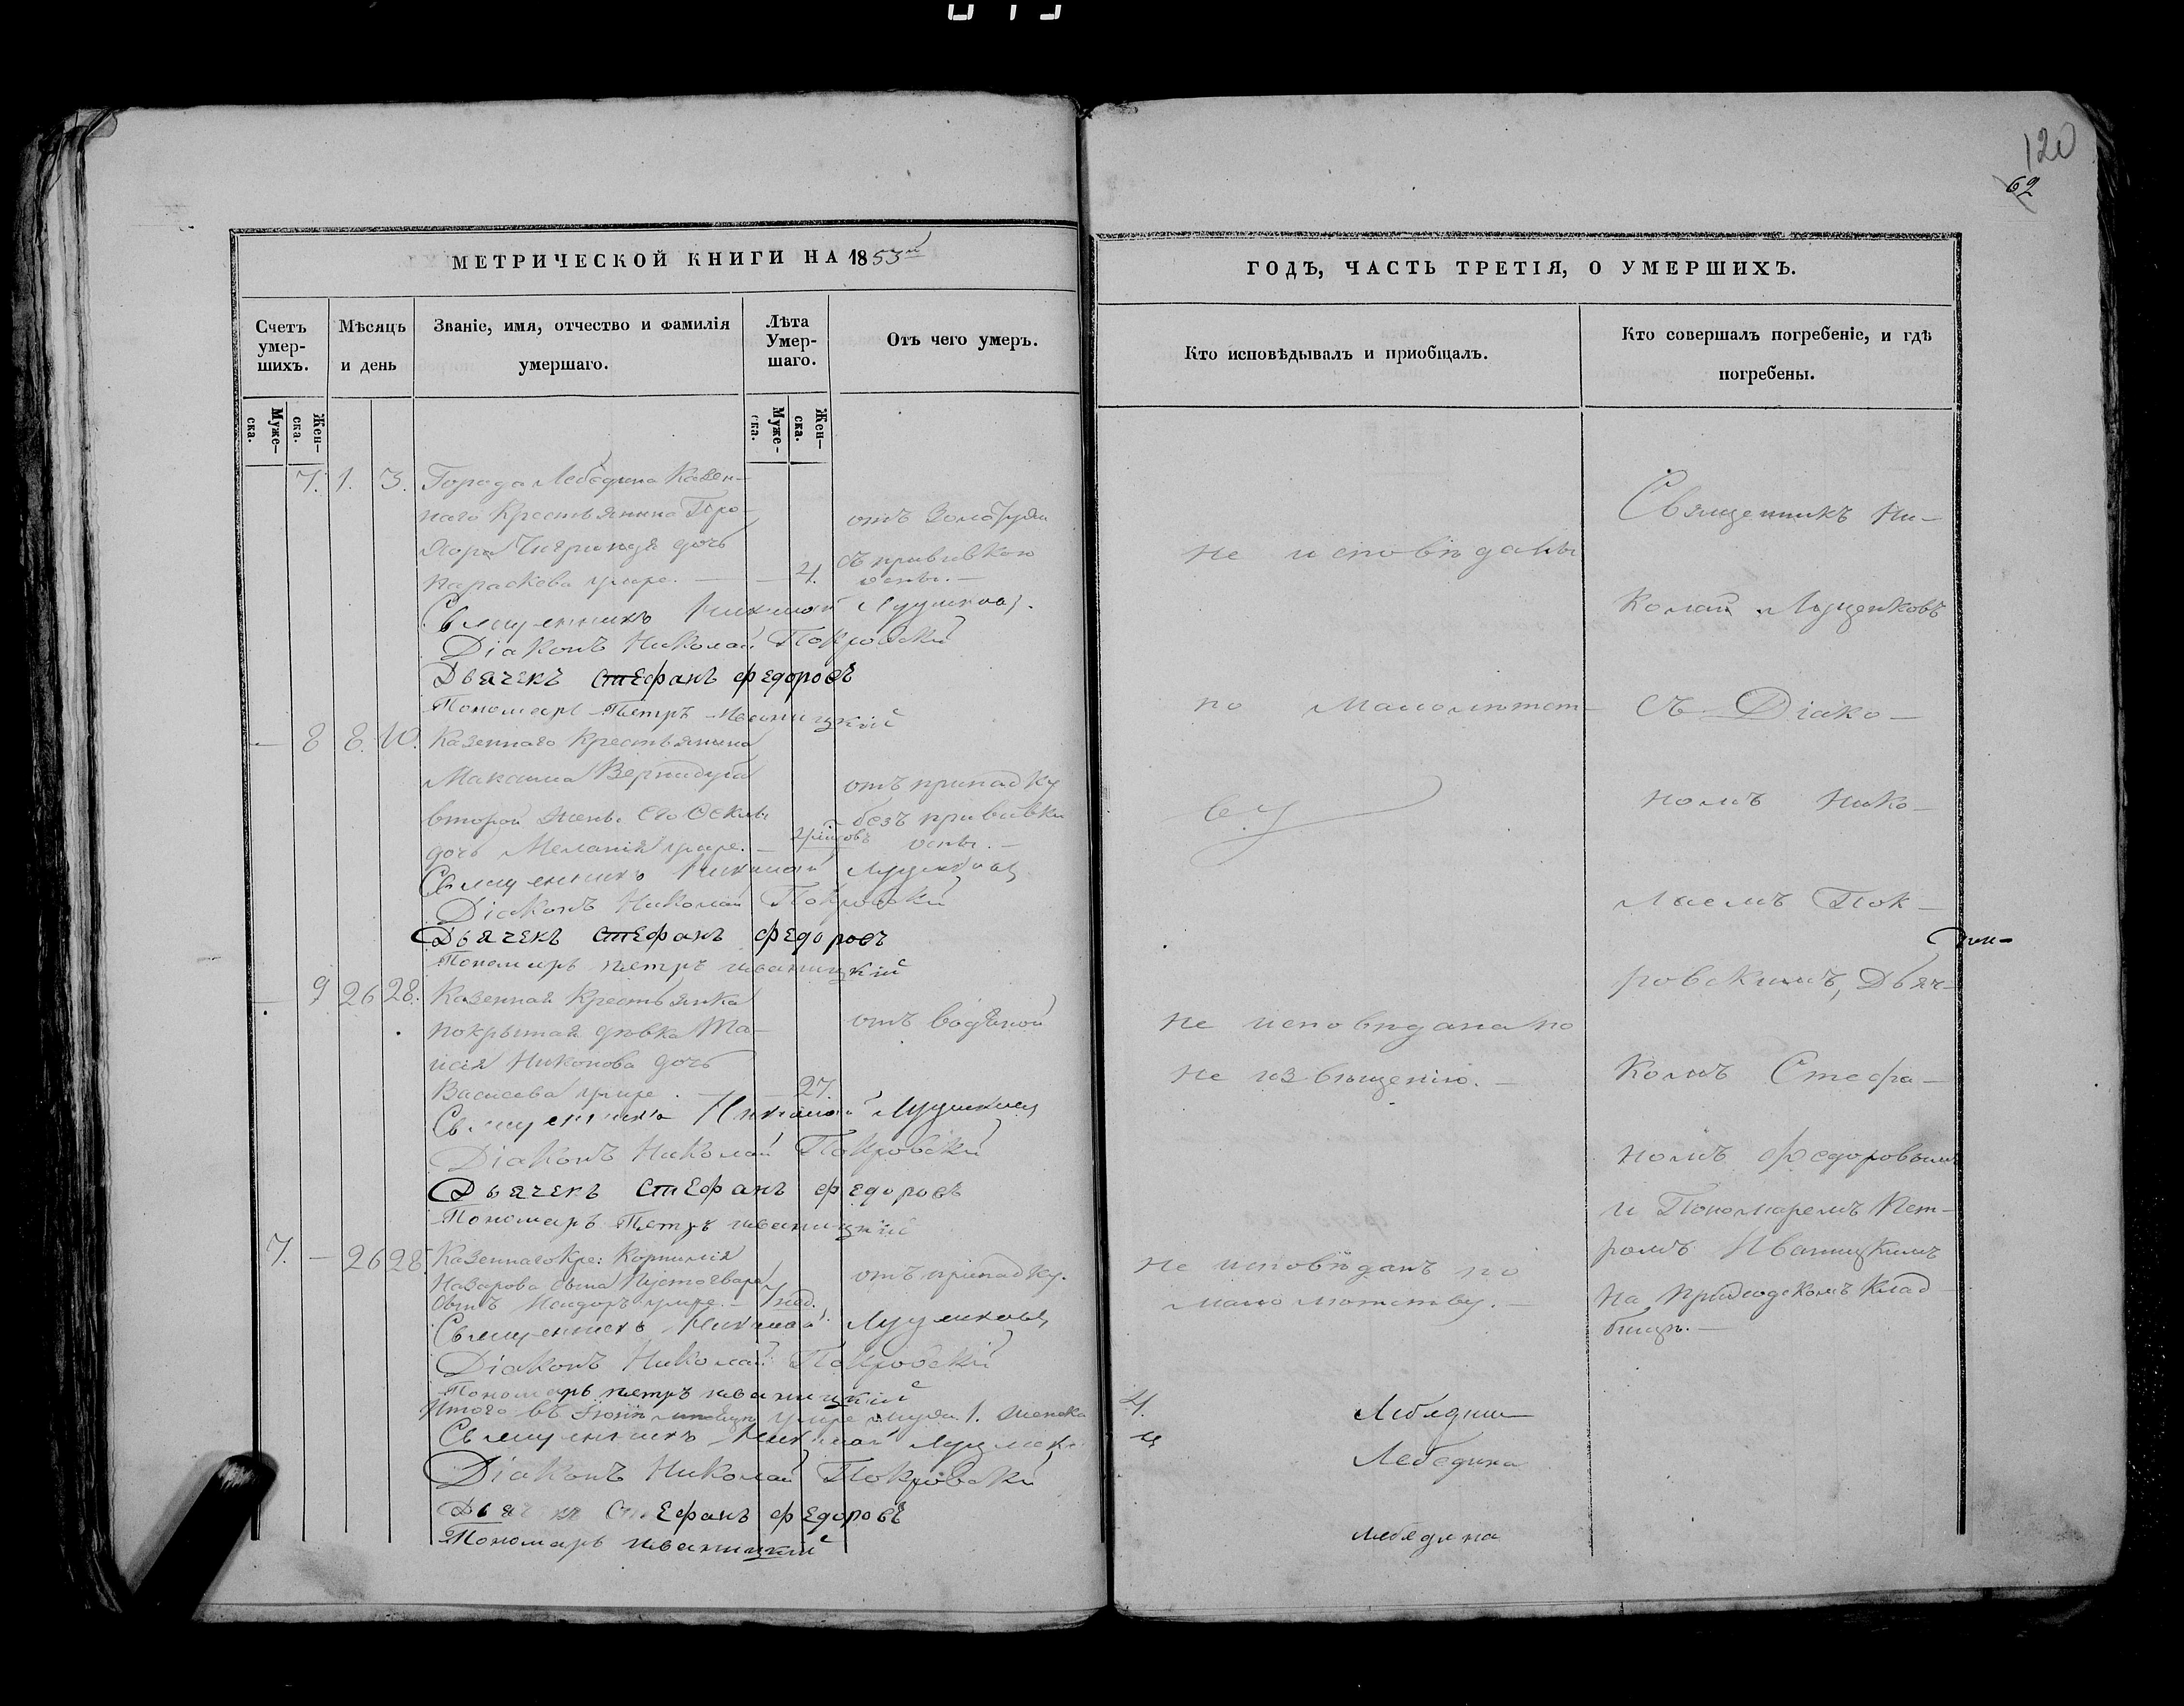 120
62
МЕТРИЧЕСКОЙ КНИГИ НА 1853
Счетъ умер-
шихъ.
Мѣсяцъ
и день
Званіе, имя, отчество и фамилія
умершаго.
Лѣта
Умер-
шаго.
Отъ чего умеръ.
Муже-
ска.
Жен-
ска.
Муже-
ска.
Жен-
ска.
7. 1. 3. Города Лебедина Казен-
наго Крестьянина Про-
хора дочь
Параскева умре. — 4.
отъ золотухи
съ прививкою
оспы. —
Священникъ Николай
Діаконъ Николай Покровскій
Дьячекъ Стефанъ Федоровъ
Пономарь Петръ Иваницкій
— 8 8. 10. Казеннаго Крестьянина
Максима Вернидуба
второй жены его
дочь Меланія умре. —
отъ припадку
безъ прививки
оспы. —
Священникъ Николай
Діаконъ Николай Покровскій
Дьячекъ Стефанъ Федоровъ
Пономарь Петръ Иваницкій
— 9 26 28. Казенная Крестьянка
покрытая дѣвка
Никонова дочь
умре. — 27.
отъ водяной
Священникъ Николай
Діаконъ Николай Покровскій
Дьячекъ Стефанъ Федоровъ
Пономарь Петръ Иваницкій
7. — 26 28. Казеннаго Кре: Корнилія
Назарова сына
сынъ умре. — 1 нед.
отъ припадку.
Священникъ Николай
Діаконъ Николай Покровскій
Пономарь Петръ Иваницкій
Итого въ умре муж. 1. женска
Священникъ Николай
Діаконъ Николай Покровскій
Дьячекъ Стефанъ Федоровъ
Пономарь Иваницкій
ГОДЪ, ЧАСТЬ ТРЕТІЯ, О УМЕРШИХЪ.
Кто исповѣдывалъ и пріобщалъ.
Кто совершалъ погребеніе, и гдѣ
погребены.
не исповѣданы
по малолѣтст-
ву
не исповѣдана по
не извѣщенію. —
не исповѣданъ по
малолѣтству. —
Священникъ Ни-
колай
съ Діако-
номъ Нико-
лаемъ Пок-
ровскимъ, Дьяч-
комъ Стефа-
номъ Федоровымъ
и Пономаремъ Пет-
ромъ Иваницкимъ
на приходскомъ клад-
бищѣ. —
4.
Лебедина
Лебедина